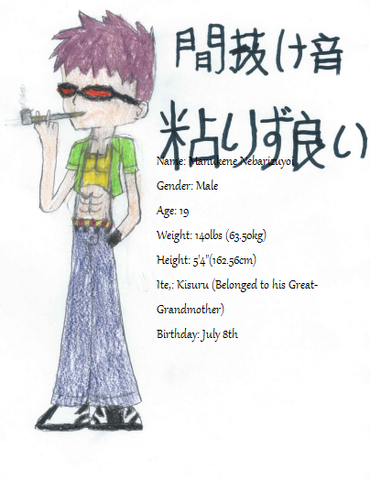 間抜け音
粘りず良い
Name: Manukene Nebarizuyoi
Gender: Male
Age: 19
Weight: 140lbs (63.50kg)
Height: 5'4"(162.56cm)
Ite,: Kisuru (Belonged to his Great-
Grandmother)
Birthday: July 8th